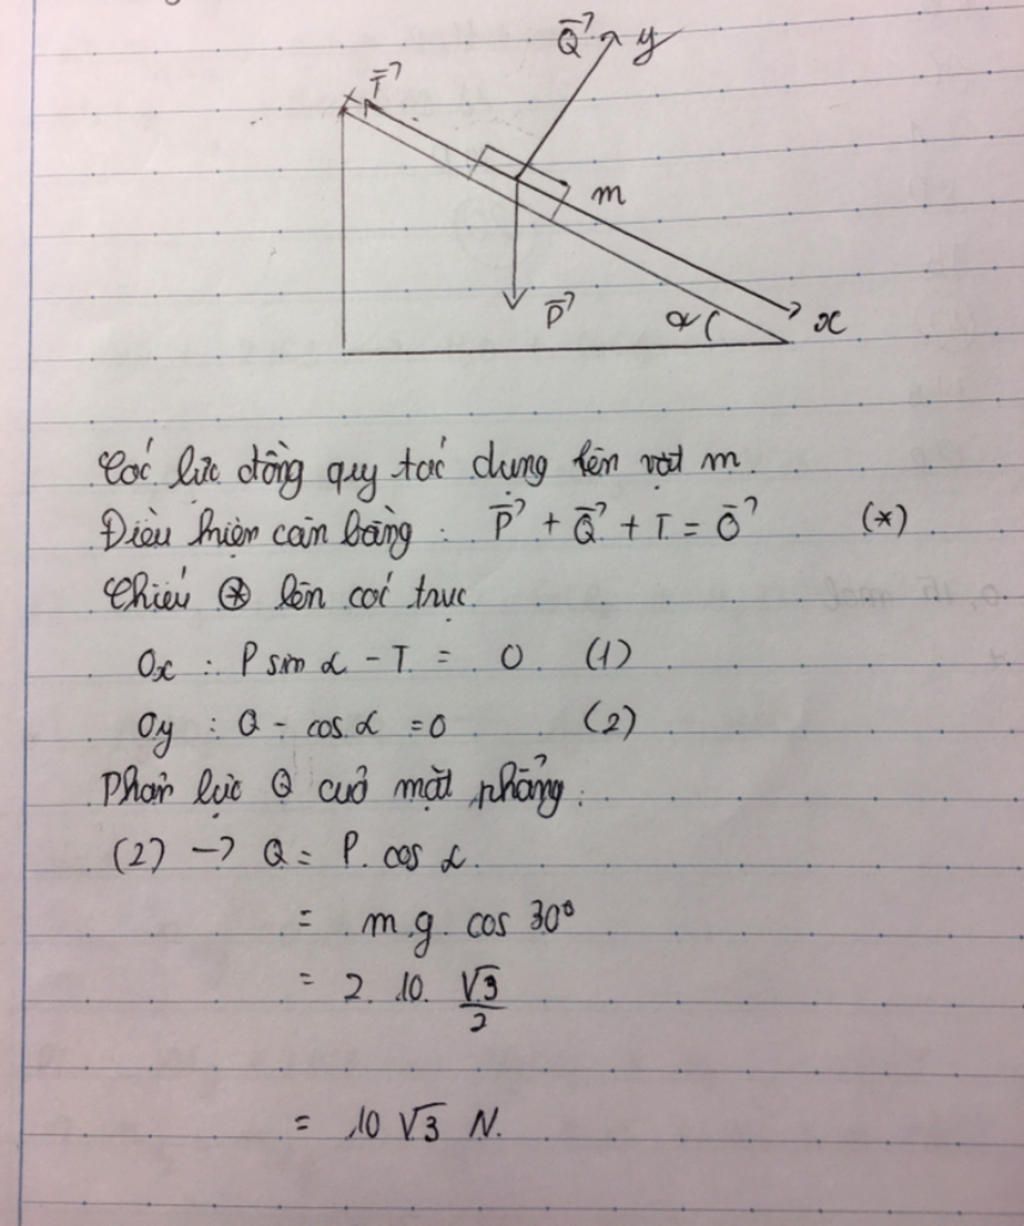 Q⃗ y
T⃗
m
P⃗
α x
Các lực đồng quy tác dụng lên vật m.
Điều kiện cân bằng : P⃗ + Q⃗ + T = O⃗ (*)
Chiếu ⊛ lên các trục.
Ox : P sin α - T = 0. (1)
Oy : Q - cos α = 0 (2)
Phản lực Q của mặt phẳng :
(2) → Q = P. cos α.
= m.g. cos 30°
= 2. 10. √3/2
= 10 √3 N.